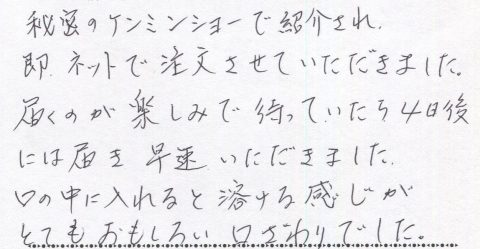 秘密のケンミンショーで紹介され、
即、ネットで注文させていただきました。
届くのが楽しみで待っていたら4日後
には届き早速いただきました。
口の中に入れると溶ける感じが
とてもおもしろい口ざわりでした。